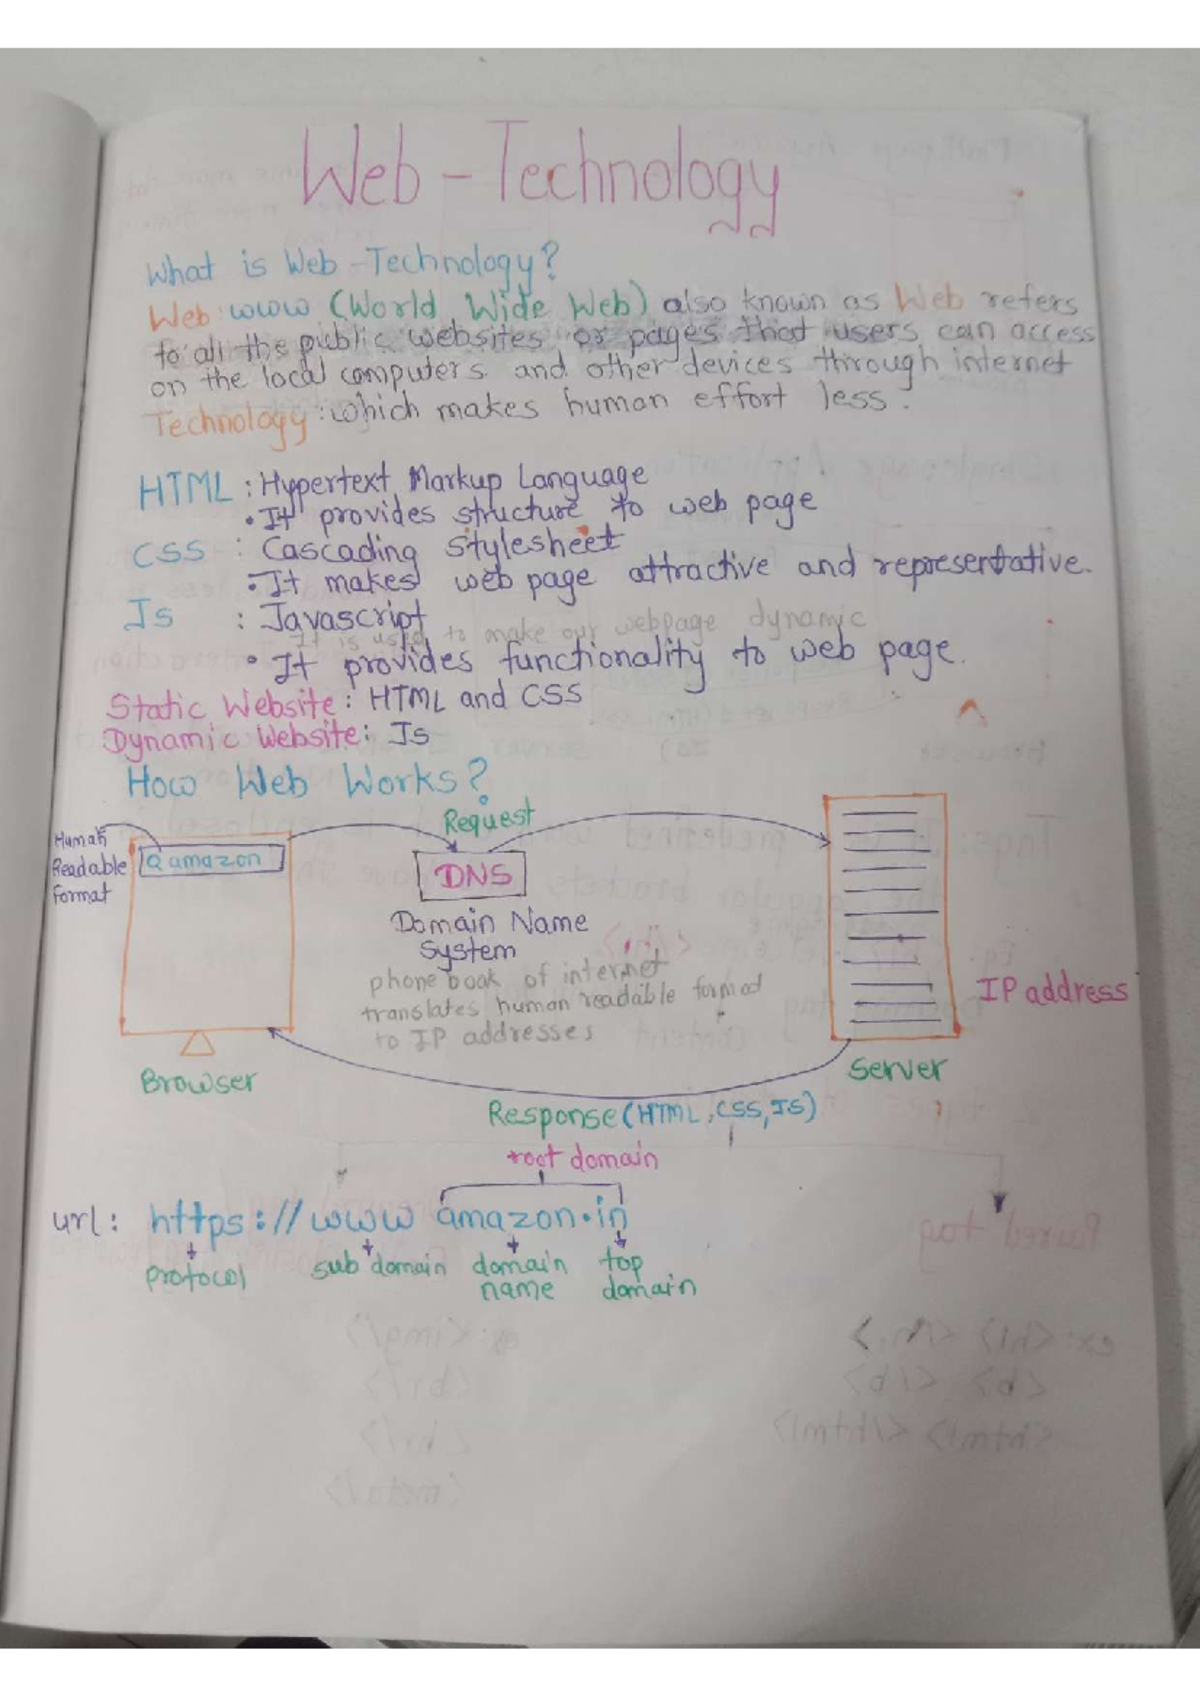 Web - Technology
What is Web - Technology?
Web: www (World Wide Web) also known as Web refers
to all the public websites or pages that users can access
on the local computers and other devices through internet
Technology: which makes human effort less.
HTML : Hypertext Markup Language
• It provides structure to web page
CSS : Cascading Stylesheet
• It makes web page attractive and representative.
Js : Javascript
It is used to make our webpage dynamic
• It provides functionality to web page.
Static Website: HTML and CSS
Dynamic Website: Js
How Web Works?
Human
Readable
format
amazon
Request
DNS
Domain Name
System
phone book of internet
translates human readable format
to IP addresses
IP address
Browser
Server
Response (HTML, CSS, JS)
root domain
url: https://www amazon.in
protocol sub domain domain name top domain